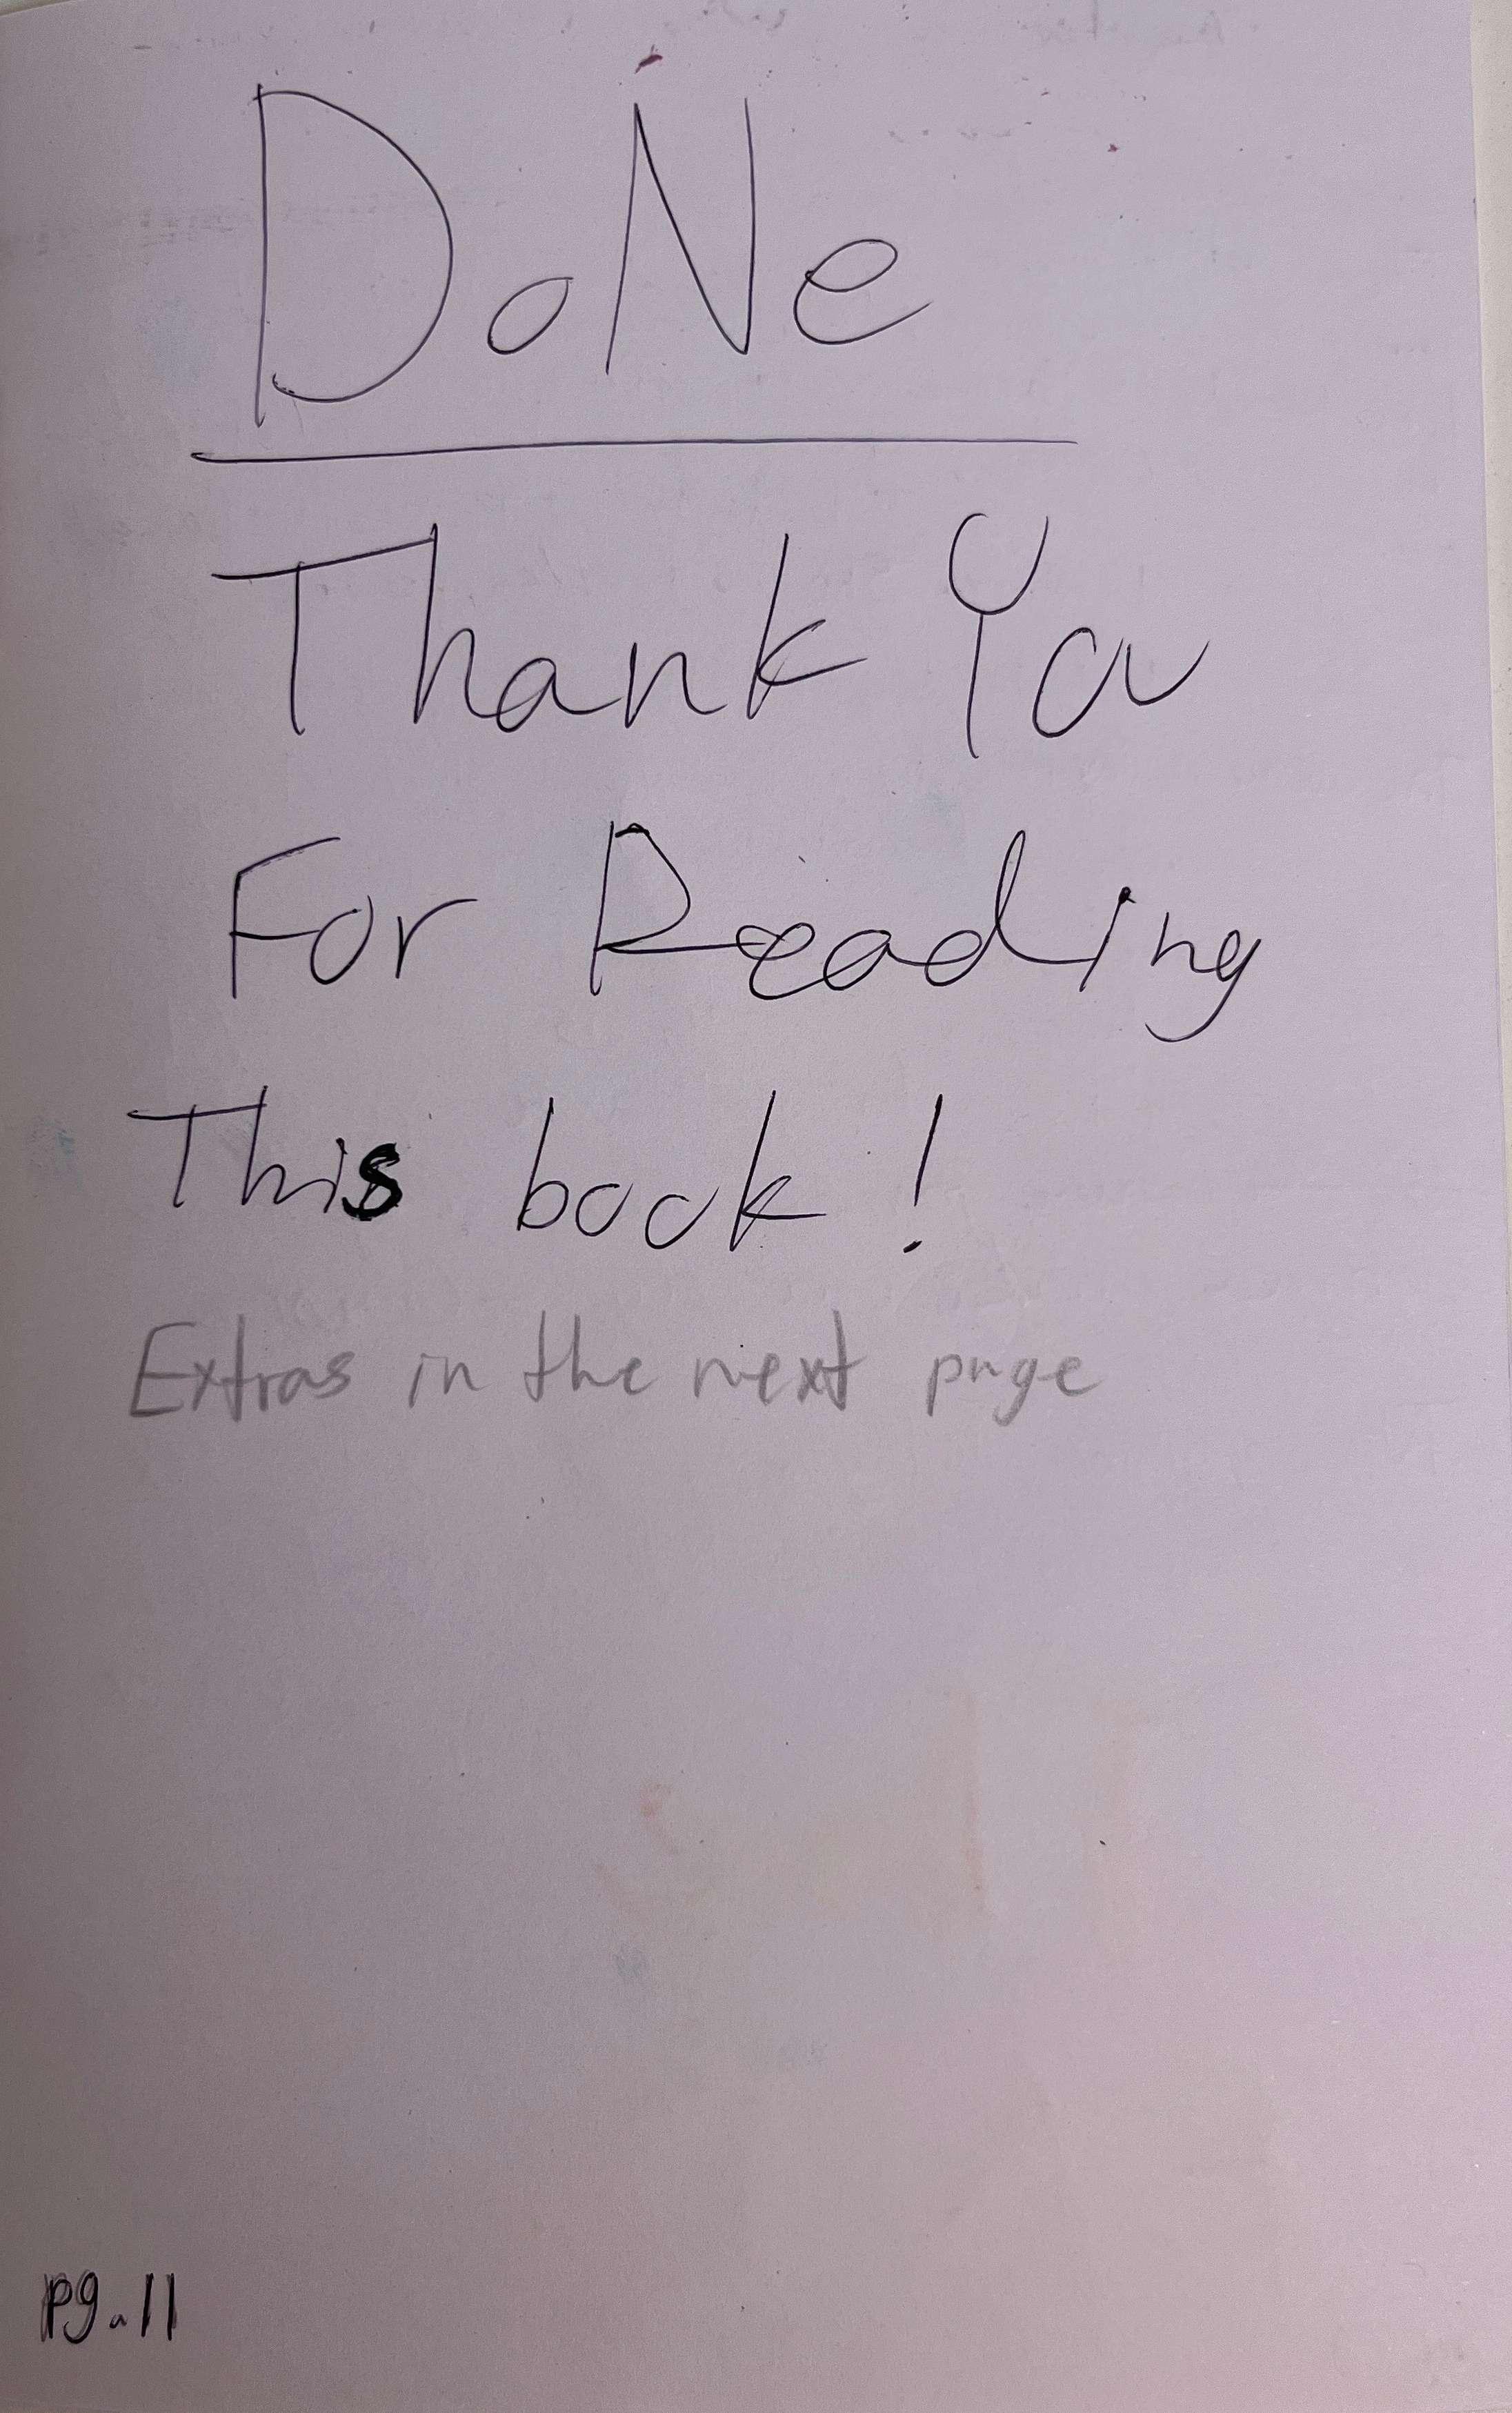 DoNe
Thank You
For Reading
This book!
Extras in the next page
pg.11